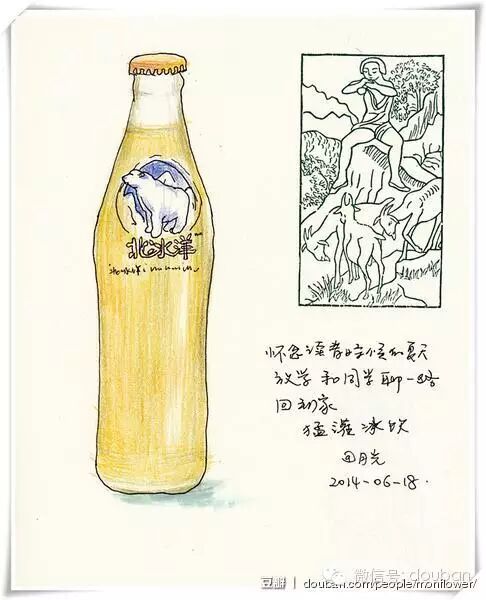 北冰洋
怀念读书时候的夏天
放学 和同学聊一路
回到家
猛灌冰饮
2014-06-18.
微信号: douban
豆瓣 | douban.com/people/moriflower/